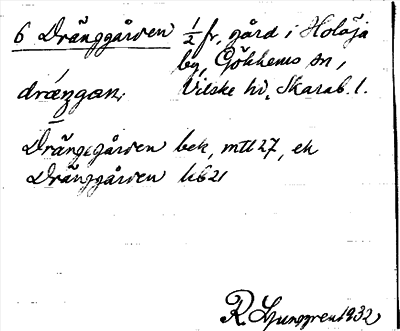 6 Dränggården 1/2 fr, gård i Holöja
by, Gökhems sn,
drængan, Vilske hd, Skarab. l.
Drängegården bek, mtl 27, ek
Dränggården hb 21
R. Ljunggren 1932